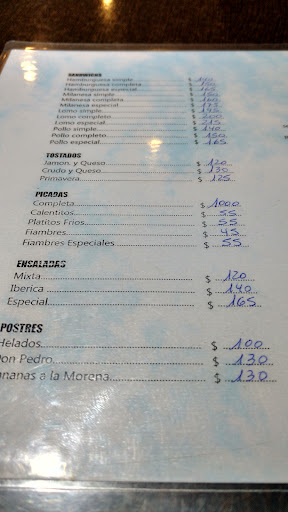 SANDWICHS
Hamburguesa simple $ 140
Hamburguesa completa $ 150
Hamburguesa especial $ 165
Milanesa simple $ 150
Milanesa completa $ 160
Milanesa especial $ 175
Lomo simple $ 195
Lomo completo $ 200
Lomo especial $ 215
Pollo simple $ 140
Pollo completo $ 150
Pollo especial $ 165
TOSTADOS
Jamon y Queso $ 120
Crudo y Queso $ 130
Primavera $ 125
PICADAS
Completa $ 1000
Calentitos $ 55
Platitos Frios $ 55
Fiambres $ 45
Fiambres Especiales $ 55
ENSALADAS
Mixta $ 120
Iberica $ 140
Especial $ 165
POSTRES
Helados $ 100
Don Pedro $ 130
ananas a la Morena $ 130